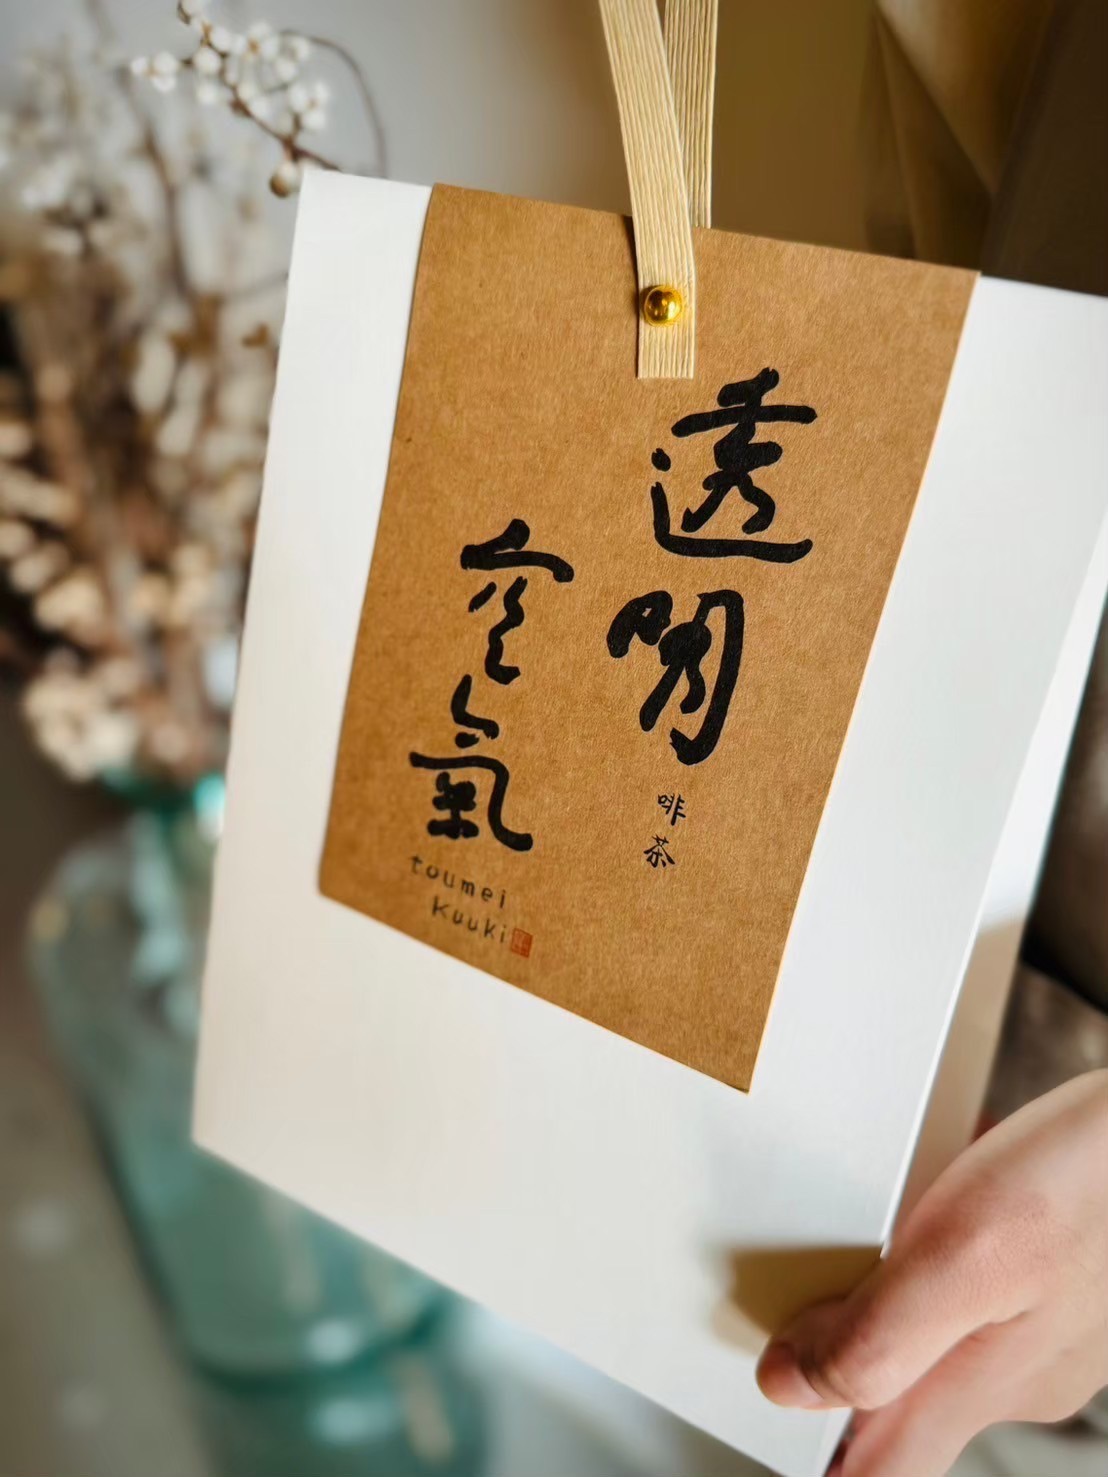 透明
啡茶
空氣
toumei
kuuki